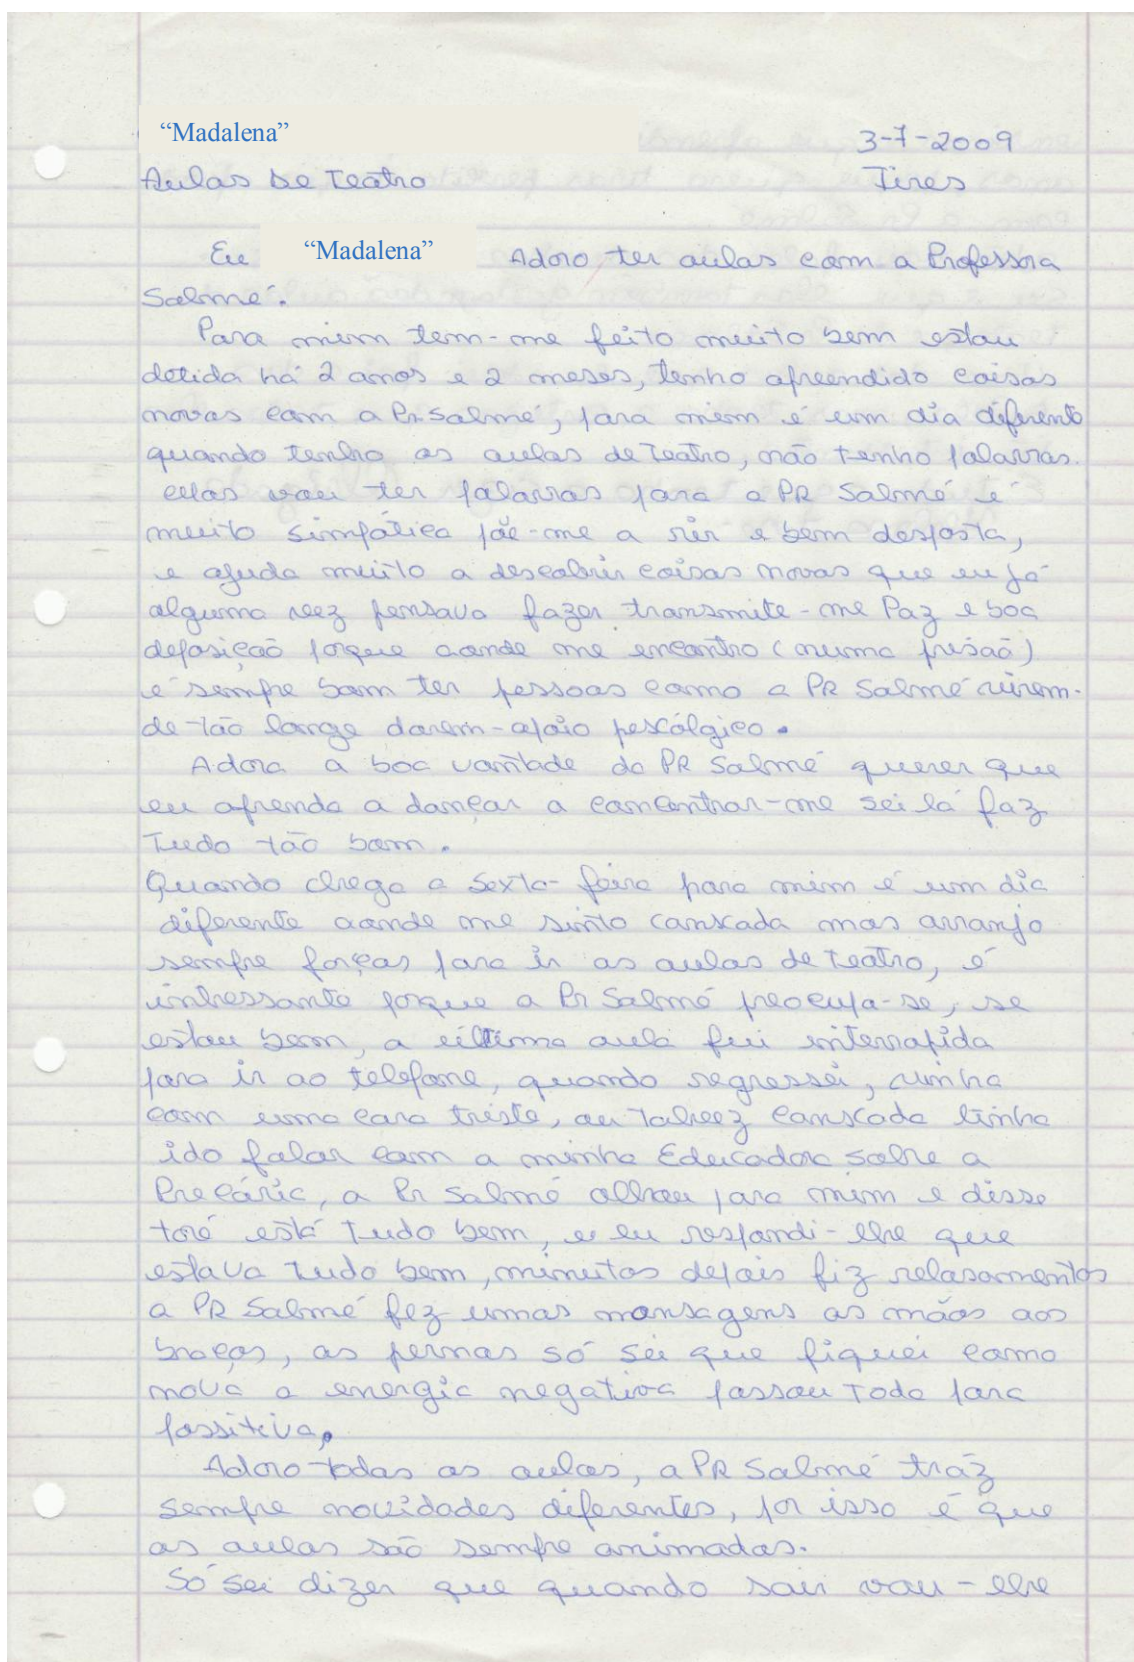 “Madalena”
3-7-2009
Aulas De Teatro
Tires
Eu “Madalena” Adoro ter aulas com a Professora
Salomé.
Para mim tem-me feito muito bem estou
detida há 2 anos e 2 meses, tenho apreendido coisas
novas com a Pr Salomé, para mim é um dia diferente
quando tenho as aulas de Teatro, não tenho palavras.
Mas vou ter palavras para a PR Salomé é
muito simpática põe-me a rir e bem desposta,
e ajuda muito a descobrir coisas novas que eu já
alguma vez pensava fazer transmite-me Paz e boa
deposição porque aonde me encontro (numa prisão)
é sempre bom ter pessoas como a PR Salomé virem-
de tão longe darem-apoio pescólgico.
Adora a boa vontade da PR Salomé querer que
eu aprenda a dançar a concentrar-me sei lá faz
Tudo tão bom.
Quando chega a Sexta-feira para mim é um dia
diferente aonde me sinto canscada mas arranjo
sempre forças para ir as aulas de Teatro, é
inthessante porque a Pr Salomé preocupa-se, se
estou bem, a última aula fui interrupida
para ir ao telefone, quando regressei, vinha
com uma cara triste, ou Talveez canscada tinha
ido falar com a minha Educadora sobre a
Precária, a Pr Salomé olhou para mim e disse
está Tudo bem, e eu respondi-lhe que
estava tudo bem, minutos depois fiz relasamentos
a PR Salomé fez umas mansagens as mãos aos
braços, as pernas só sei que fiquei como
nova a energia negativa passou Toda para
possitiva.
Adoro todas as aulas, a PR Salomé tráz
sempre novidades diferentes, por isso é que
as aulas são sempre animadas.
Só sei dizer que quando sair vou-lhe